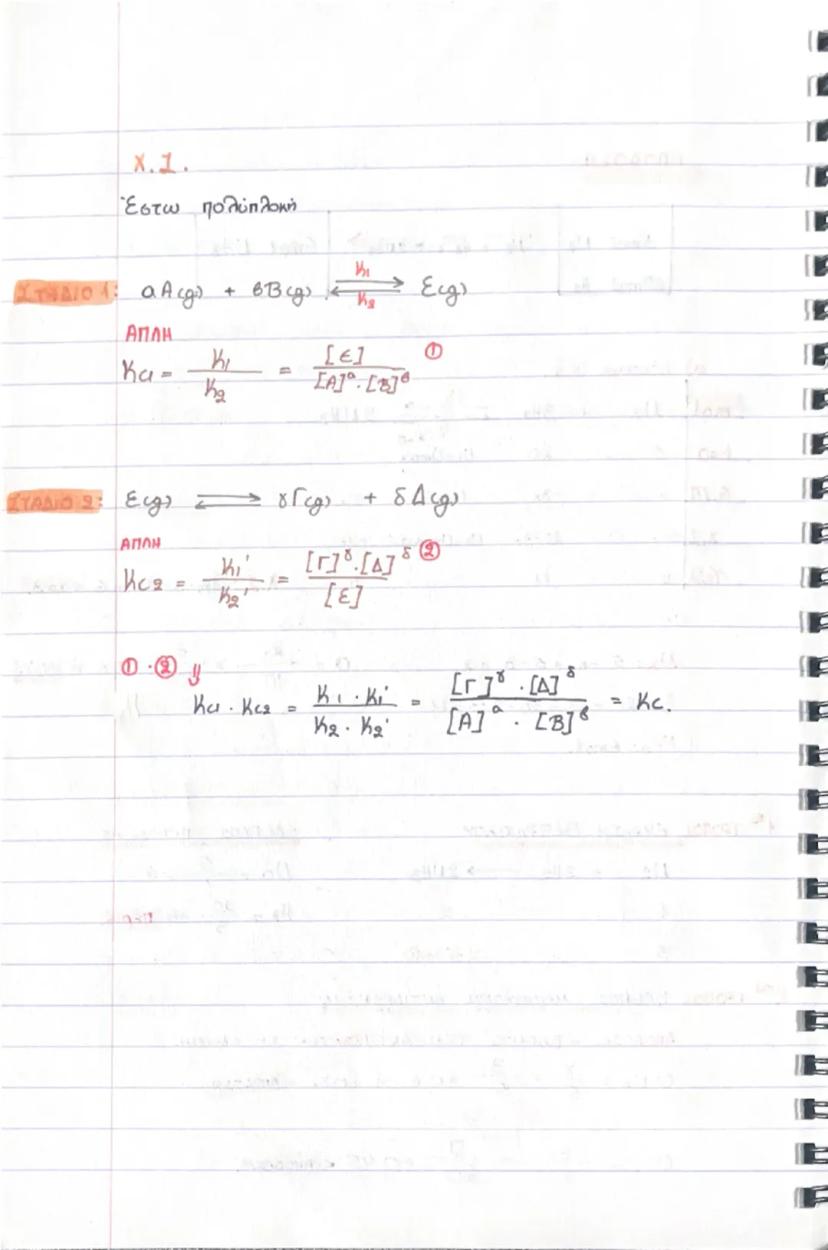 Χ.1.
Έστω πολύπλοκη
ΣΤΑΔΙΟ 1: αA(g) + βB(g) ⇌ E(g) K₁ K₂
ΑΠΛΗ
Kc1 = K₁ / K₂ = [E] / [A]ᵅ · [B]ᵝ ①
ΣΤΑΔΙΟ 2: E(g) ⇌ γΓ(g) + δΔ(g)
ΑΠΛΗ
Kc2 = K₁' / K₂' = [Γ]ᵞ · [Δ]ᵟ / [E] ②
① · ② ⇒
Kc1 · Kc2 = K₁ · K₁' / K₂ · K₂' = [Γ]ᵞ · [Δ]ᵟ / [A]ᵅ · [B]ᵝ = Kc.